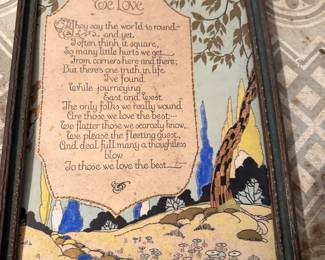 We Love
They say the world is round—
and yet
I often think it square,
So many little hurts we get
From corners here and there;
But there's one truth in life
I've found
While journeying
East and West
The only folks we really wound
Are those we love the best:—
We flatter those we scarcely know,
We please the fleeting guest,
And deal full many a thoughtless
blow
To those we love the best—